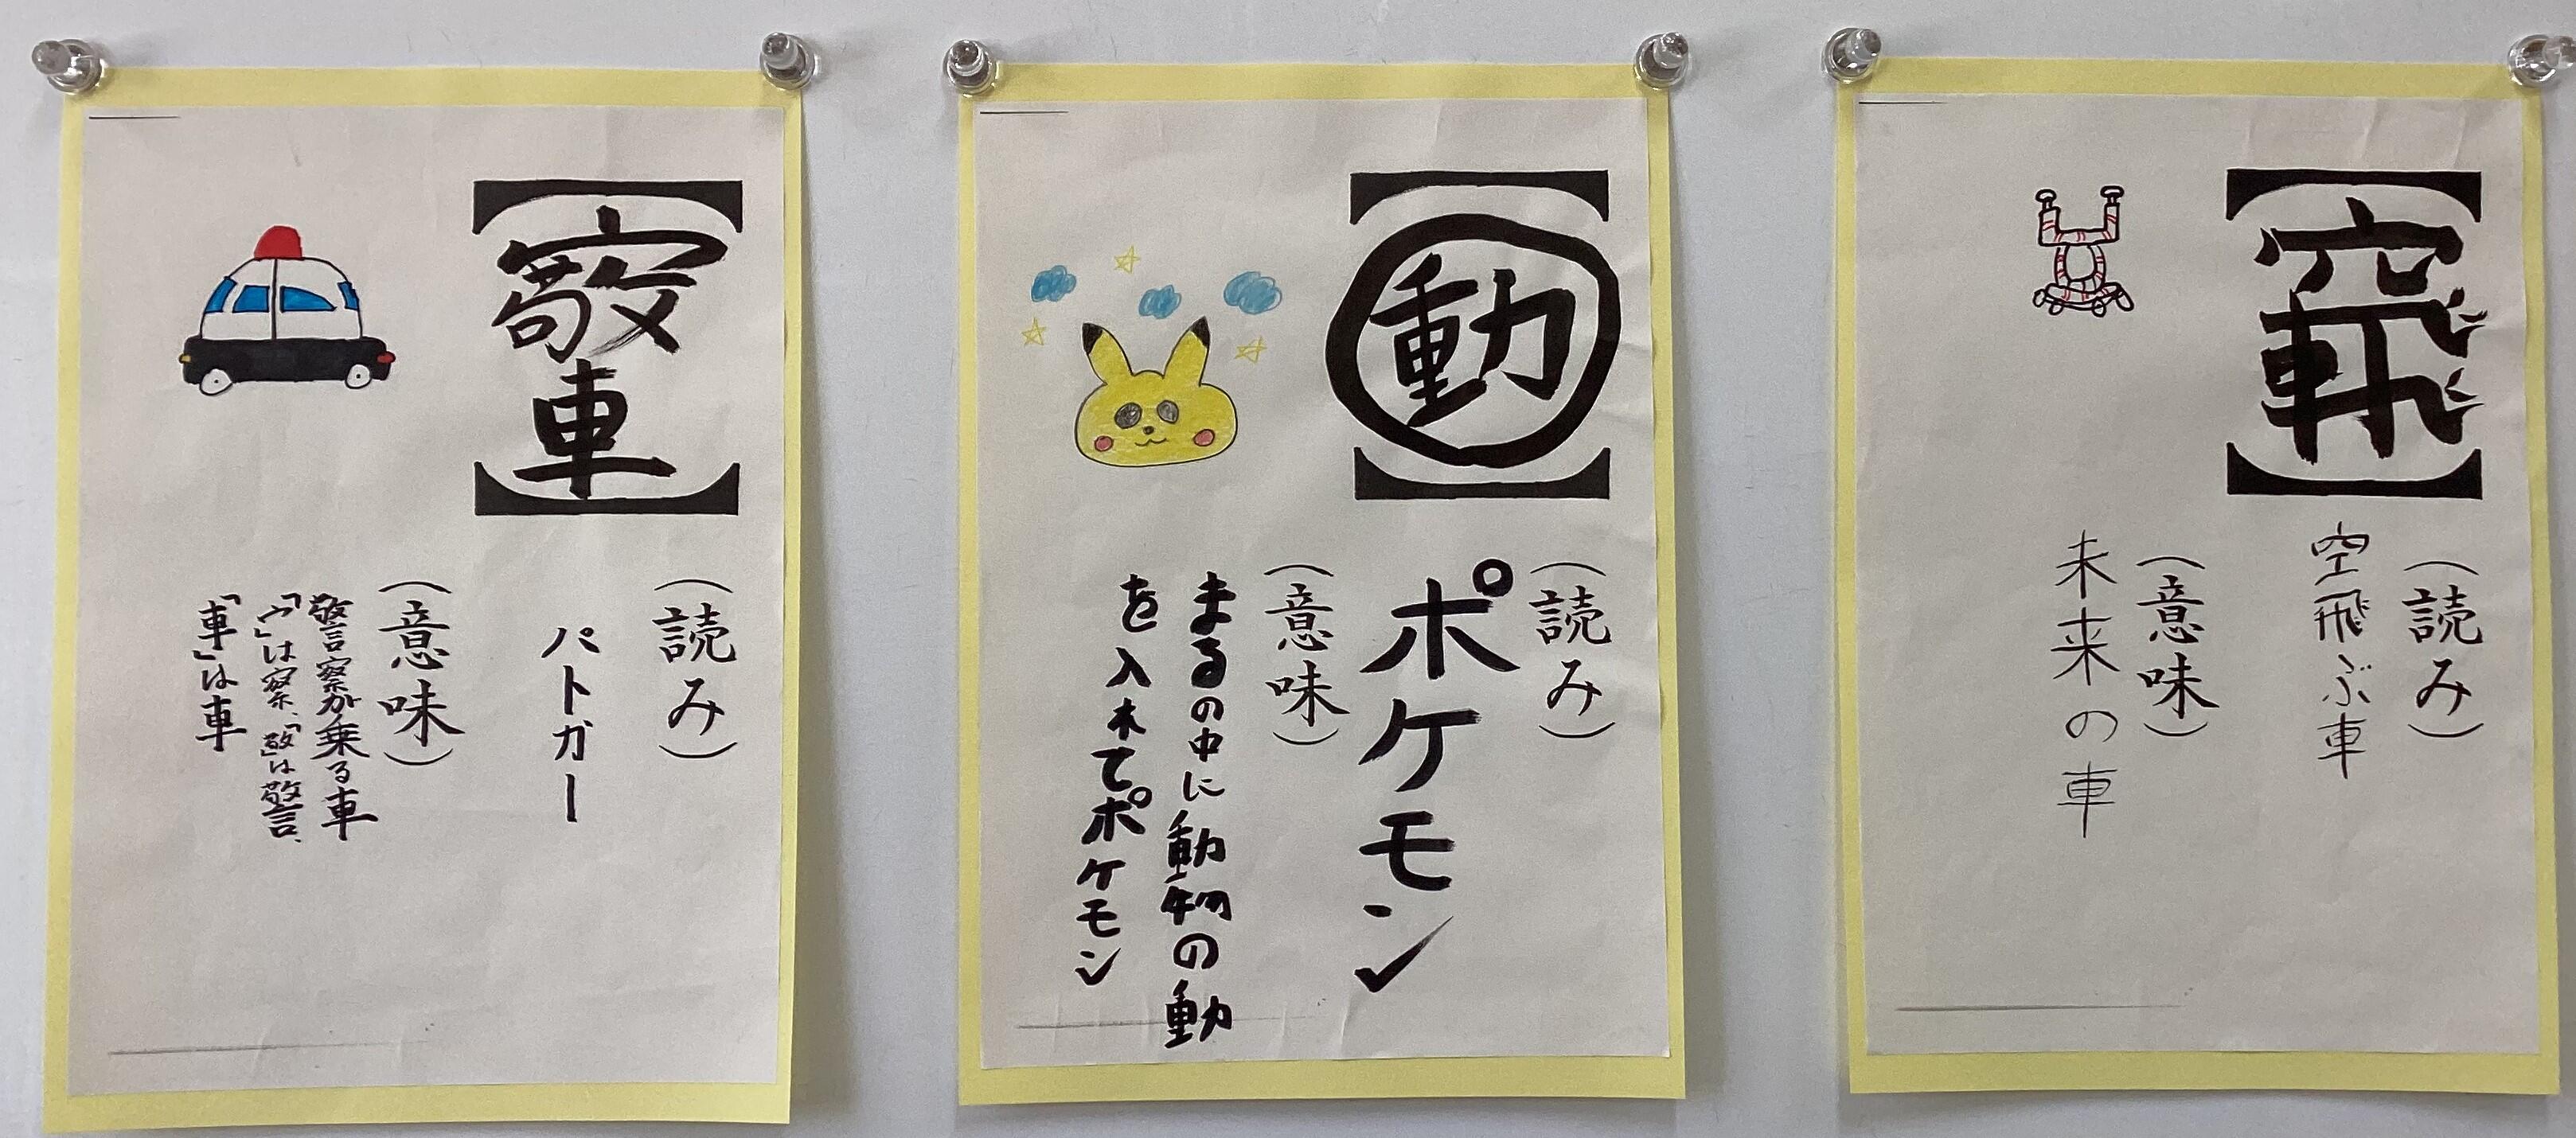 【動】
(読み)
ポケモン
(意味)
まるの中に動物の動
を入れてポケモン
(読み)
空飛ぶ車
(意味)
未来の車
(読み)
パトガー
(意味)
警察が乗る車
「宀」は察、「敬」は警、
「車」は車